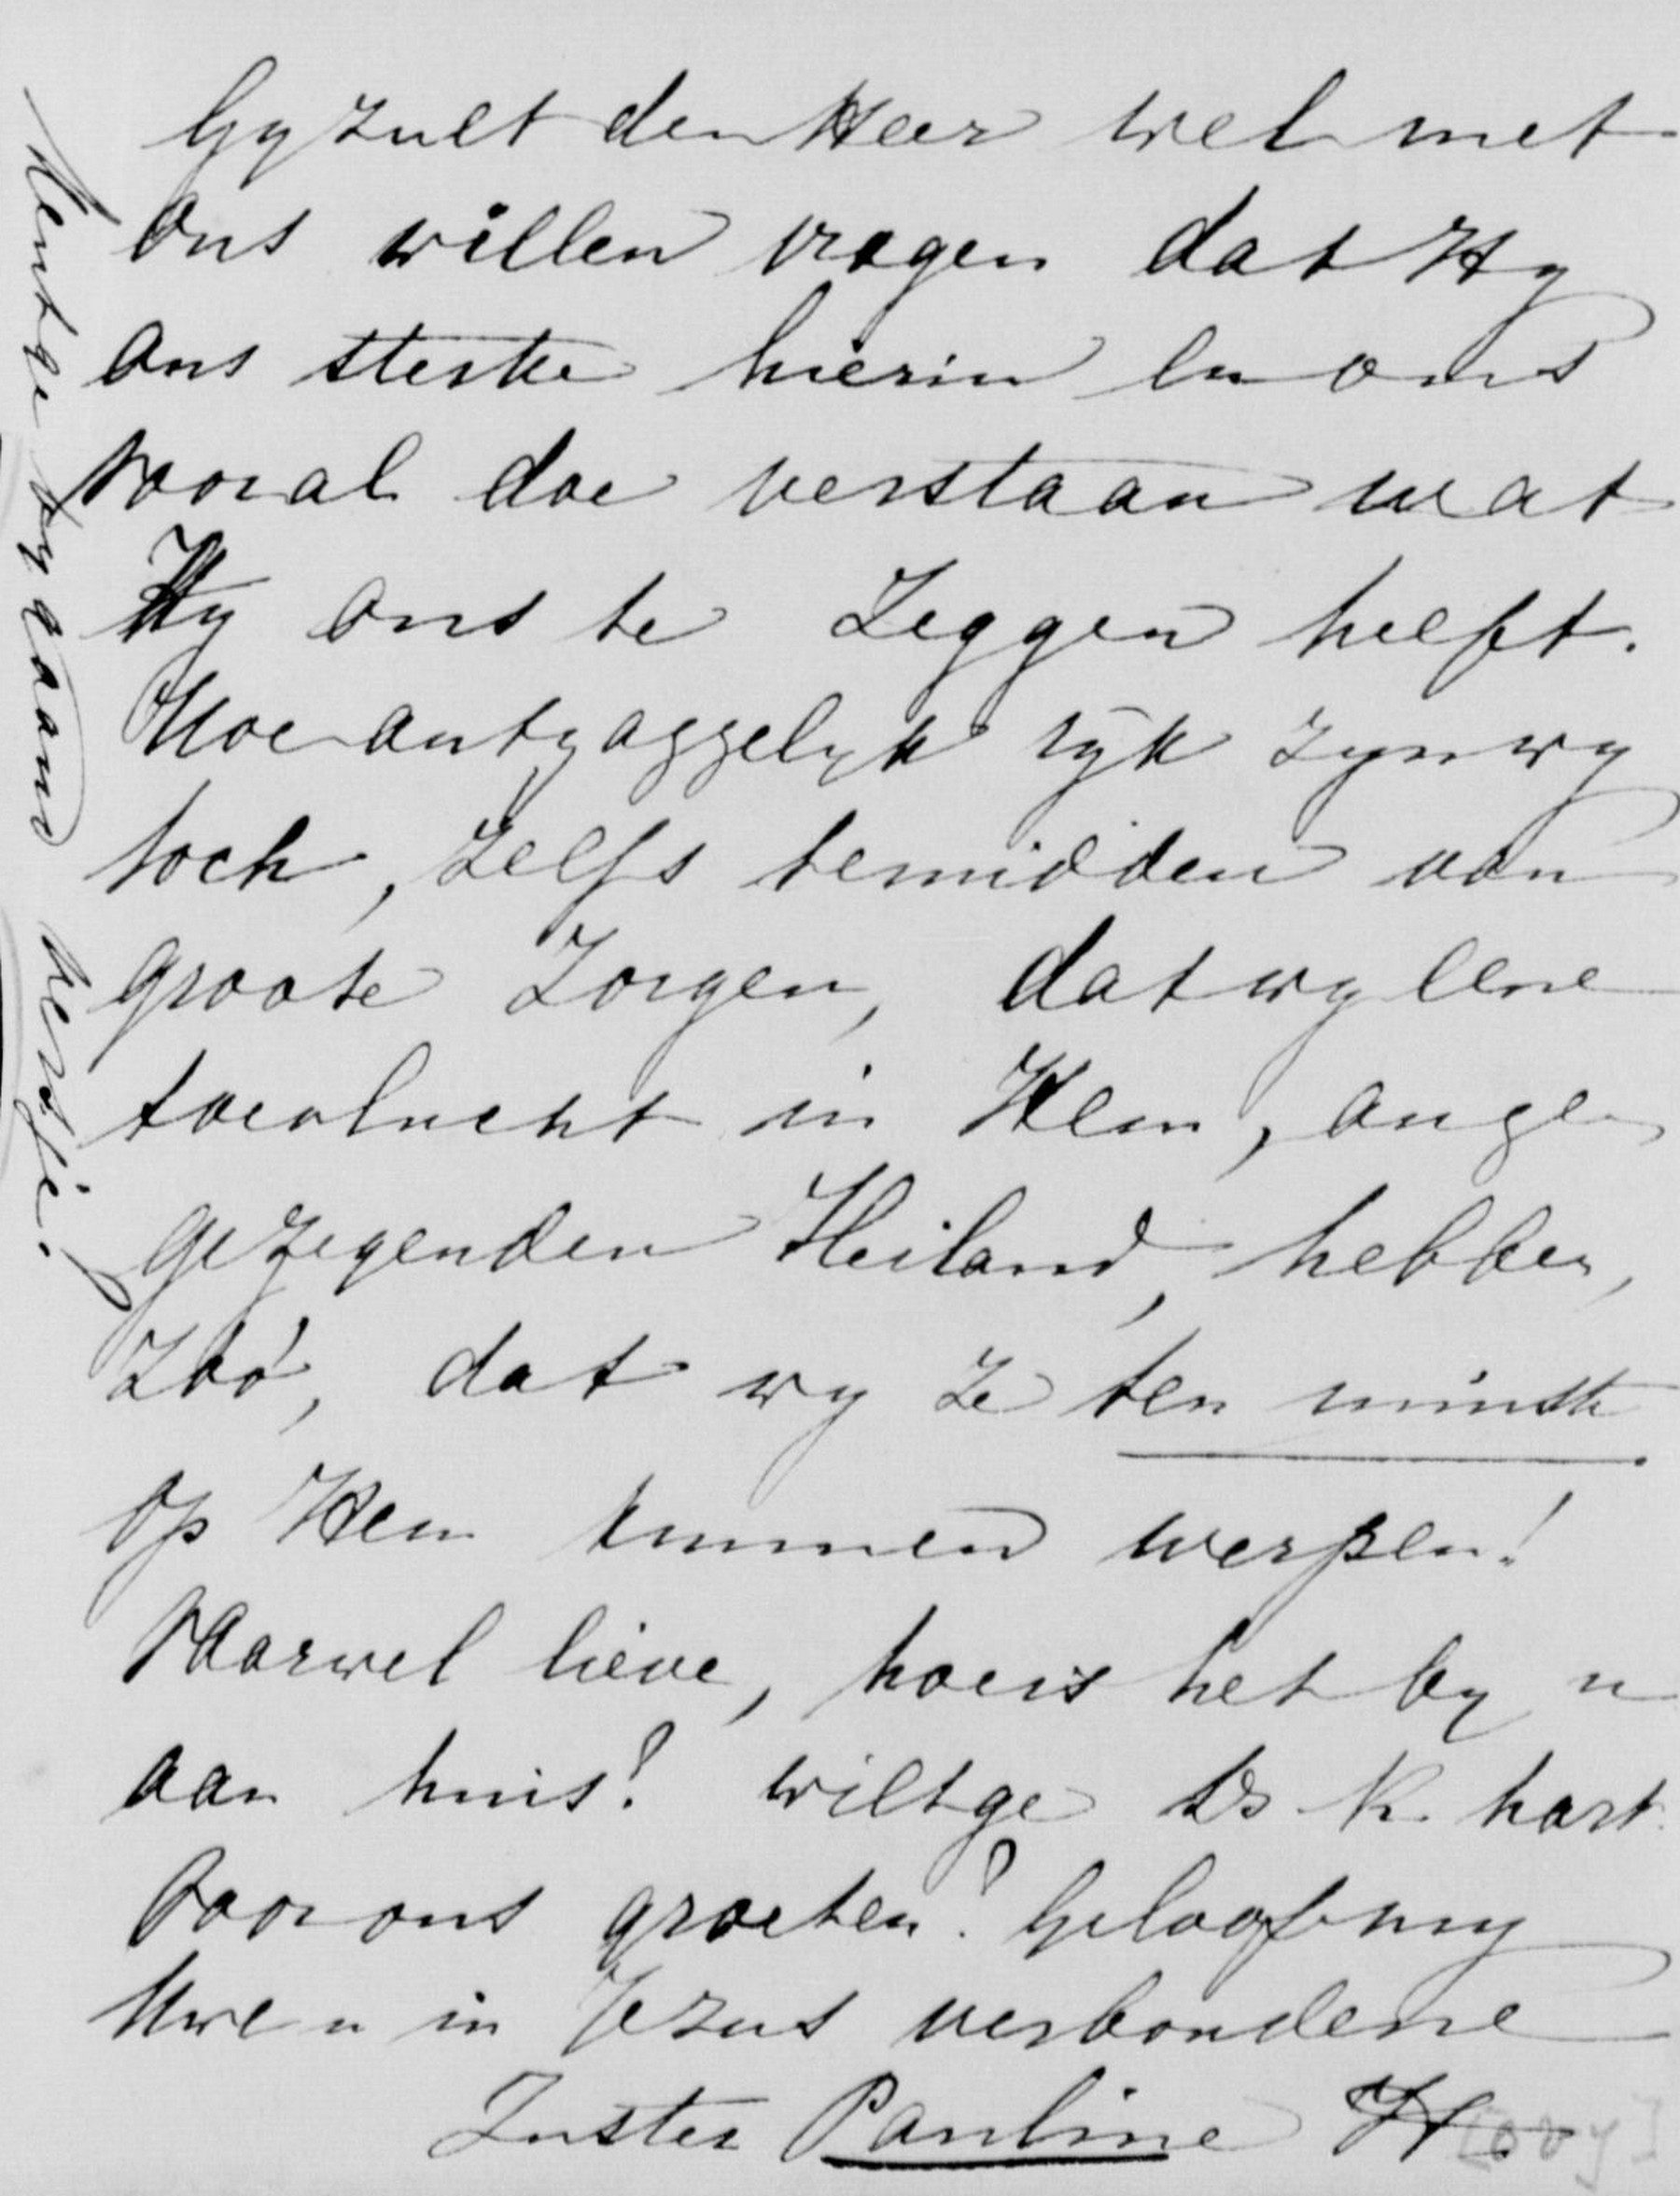 Gy zult den Heer wel met
ons willen vragen dat Hy
ons sterke hierin en ons
vooral doe verstaan wat
Hy ons te zeggen heeft.
Hoe ontzaggelyk ryk zyn wy
toch, zelfs temidden van
groote zorgen, dat wy eene
toevlucht in Hem, onzen
gezegenden Heiland, hebben,
zóó, dat wy ze ten minste
op Hem kunnen werpen!
Vaarwel lieve, hoe is het by u
aan huis? wilt ge Ds K. hart.
voor ons groeten? Geloof my
Uwe u in Jezus verbondene
Zuster Pauline H[ovy]
Kent ge bygaand versje?